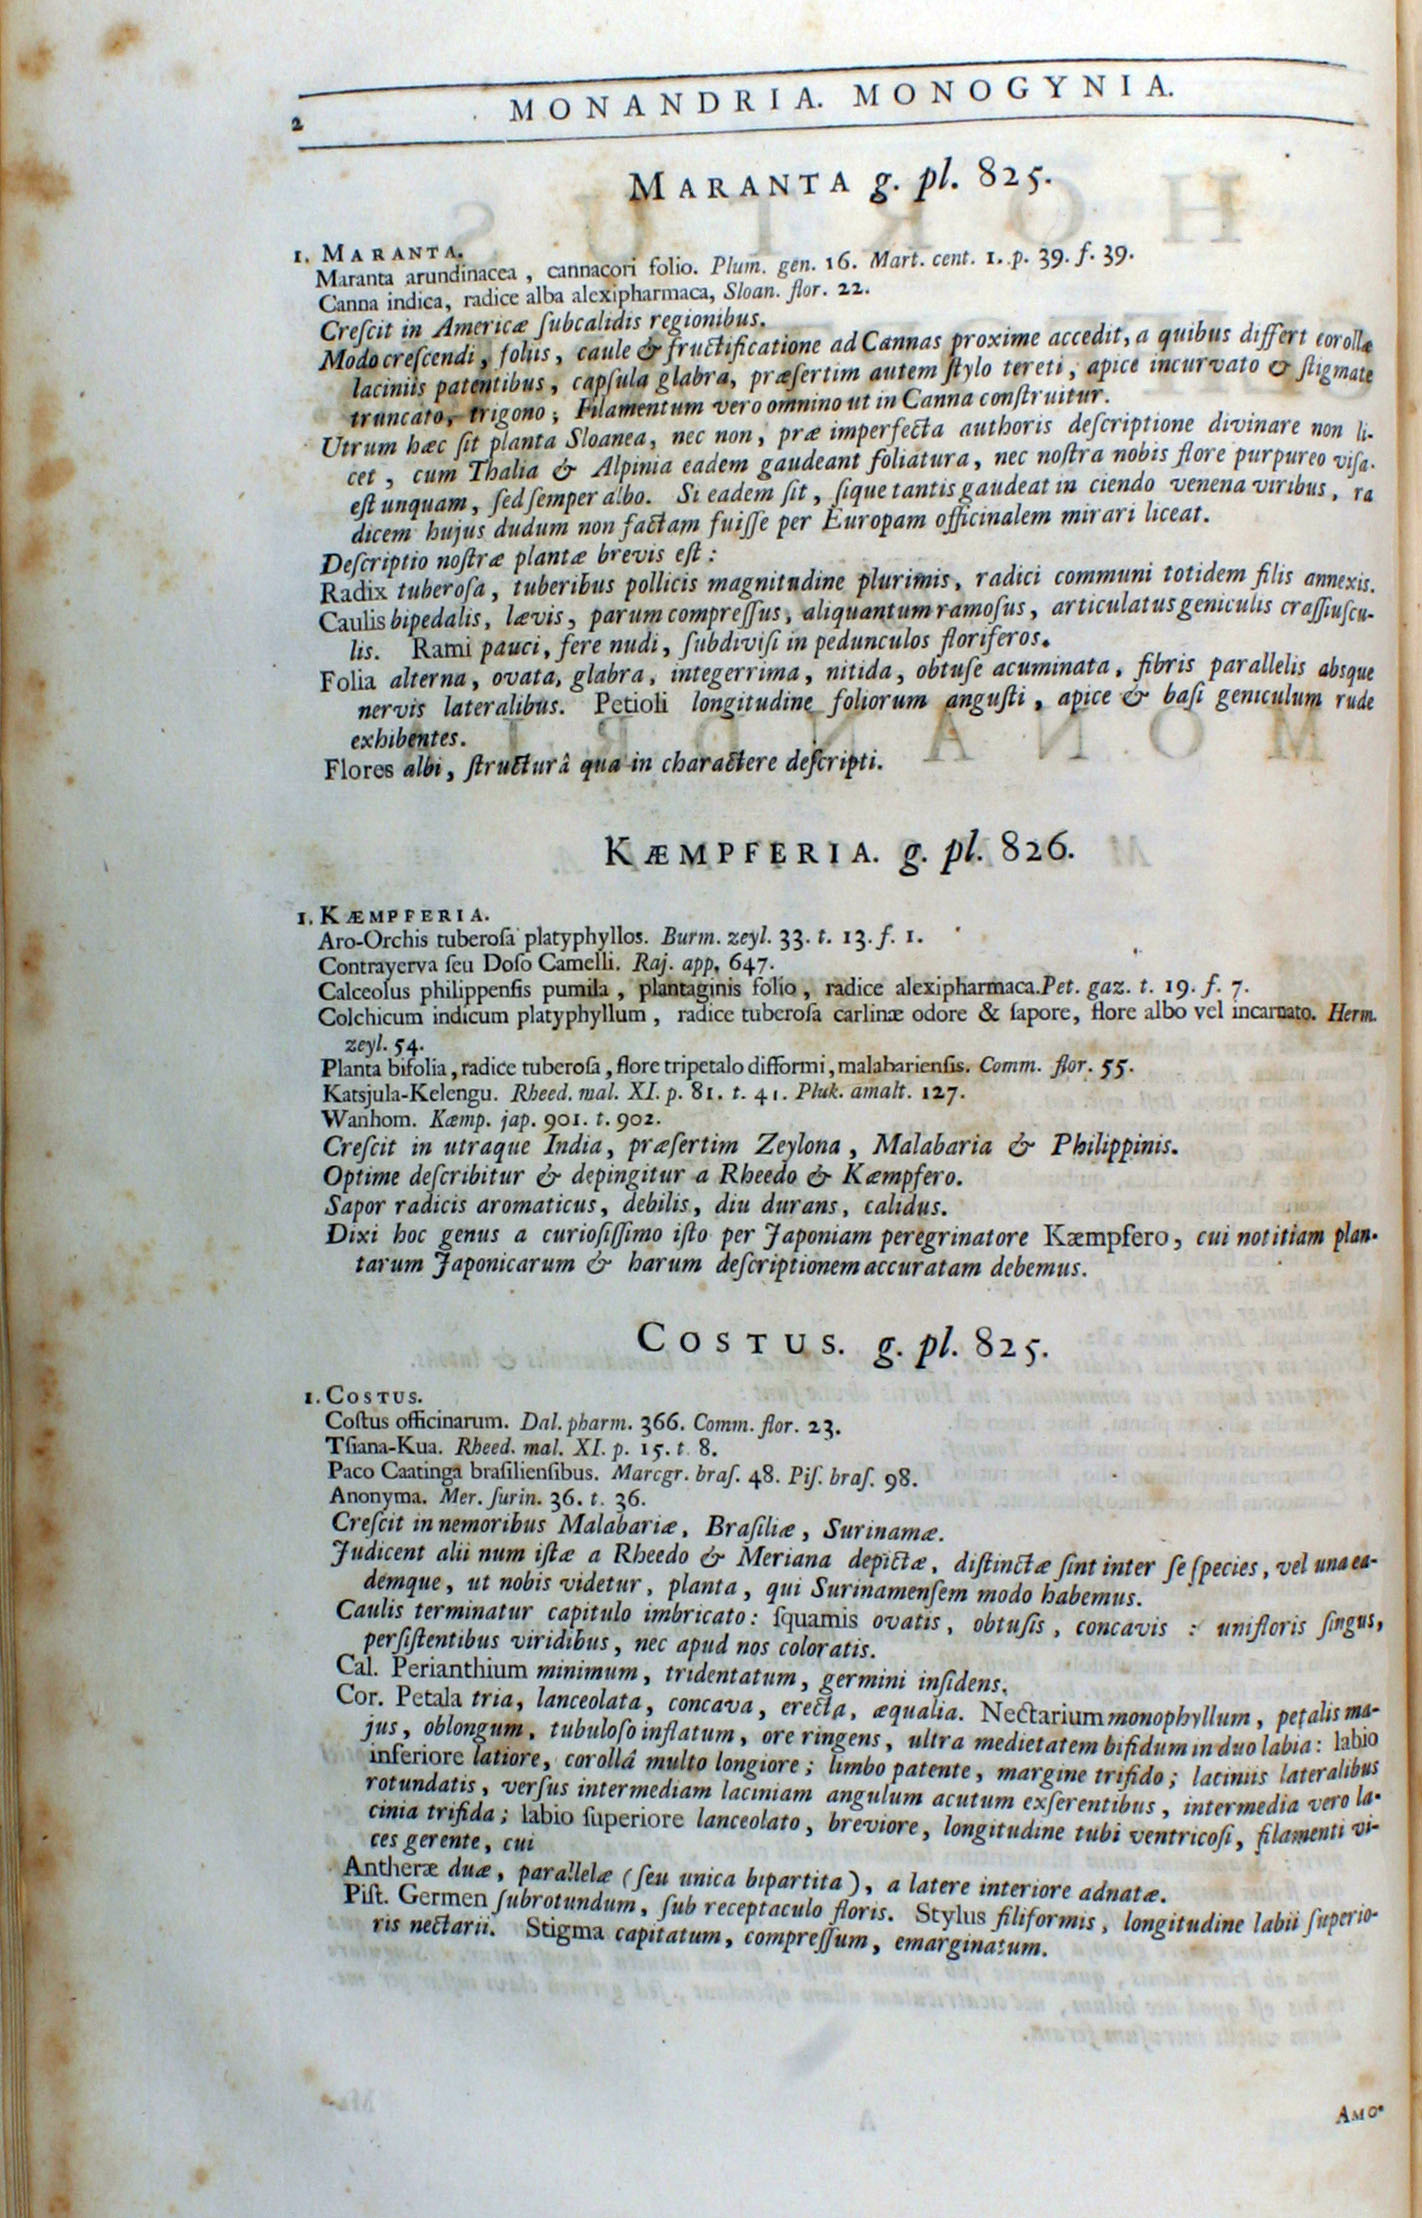 2
MONANDRIA. MONOGYNIA.
MARANTA g. pl. 825.
1. MARANTA.
Maranta arundinacea, cannacori folio. Plum. gen. 16. Mart. cent. 1. p. 39. f. 39.
Canna indica, radice alba alexipharmaca, Sloan. flor. 22.
Creſcit in Americæ ſubcalidis regionibus.
Modo creſcendi, foliis, caule & fructificatione ad Cannas proxime accedit, a quibus differt corollæ
laciniis patentibus, capſula glabra, præſertim autem ſtylo tereti, apice incurvato & ſtigmate
truncato, trigono; Filamentum vero omnino ut in Canna conſtruitur.
Utrum hæc ſit planta Sloanea, nec non, præ imperfecta authoris deſcriptione divinare non li-
cet, cum Thalia & Alpinia eadem gaudeant foliatura, nec noſtra nobis flore purpureo viſa
eſt unquam, ſed ſemper albo. Si eadem ſit, ſique tantis gaudeat in ciendo venena viribus, ra
dicem hujus dudum non factam fuiſſe per Europam officinalem mirari liceat.
Deſcriptio noſtræ plantæ brevis eſt:
Radix tuberoſa, tuberibus pollicis magnitudine plurimis, radici communi totidem filis annexis.
Caulis bipedalis, lævis, parum compreſſus, aliquantum ramoſus, articulatus geniculis craſſiuſcu-
lis. Rami pauci, fere nudi, ſubdiviſi in pedunculos floriferos.
Folia alterna, ovata, glabra, integerrima, nitida, obtuſe acuminata, fibris parallelis absque
nervis lateralibus. Petioli longitudine foliorum anguſti, apice & baſi geniculum rude
exhibentes.
Flores albi, ſtructurâ qua in charactere deſcripti.
KÆMPFERIA. g. pl. 826.
1. KÆMPFERIA.
Aro-Orchis tuberoſa platyphyllos. Burm. zeyl. 33. t. 13. f. 1.
Contrayerva ſeu Doſo Camelli. Raj. app. 647.
Calceolus philippenſis pumila, plantaginis folio, radice alexipharmaca. Pet. gaz. t. 19. f. 7.
Colchicum indicum platyphyllum, radice tuberoſa carlinæ odore & ſapore, flore albo vel incarnato. Herm.
zeyl. 54.
Planta bifolia, radice tuberoſa, flore tripetalo difformi, malabarienſis. Comm. flor. 55.
Katsjula-Kelengu. Rheed. mal. XI. p. 81. t. 41. Pluk. amalt. 127.
Wanhom. Kæmp. jap. 901. t. 902.
Creſcit in utraque India, præſertim Zeylona, Malabaria & Philippinis.
Optime deſcribitur & depingitur a Rheedo & Kæmpfero.
Sapor radicis aromaticus, debilis, diu durans, calidus.
Dixi hoc genus a curioſiſſimo iſto per Japoniam peregrinatore Kæmpfero, cui notitiam plan-
tarum Japonicarum & harum deſcriptionem accuratam debemus.
COSTUS. g. pl. 825.
1. COSTUS.
Coſtus officinarum. Dal. pharm. 366. Comm. flor. 23.
Tſiana-Kua. Rheed. mal. XI. p. 15. t 8.
Paco Caatinga braſilienſibus. Marcgr. braſ. 48. Piſ. braſ. 98.
Anonyma. Mer. ſurin. 36. t. 36.
Creſcit in nemoribus Malabariæ, Braſiliæ, Surinamæ.
Judicent alii num iſtæ a Rheedo & Meriana depictæ, diſtinctæ ſint inter ſe ſpecies, vel una ea-
demque, ut nobis videtur, planta, qui Surinamenſem modo habemus.
Caulis terminatur capitulo imbricato: ſquamis ovatis, obtuſis, concavis: unifloris ſingus,
perſiſtentibus viridibus, nec apud nos coloratis.
Cal. Perianthium minimum, tridentatum, germini inſidens.
Cor. Petala tria, lanceolata, concava, erecta, æqualia. Nectarium monophyllum, petalis ma-
jus, oblongum, tubuloſo inflatum, ore ringens, ultra medietatem bifidum in duo labia: labio
inferiore latiore, corollâ multo longiore; limbo patente, margine trifido; laciniis lateralibus
rotundatis, verſus intermediam laciniam angulum acutum exſerentibus, intermedia vero la-
cinia trifida; labio ſuperiore lanceolato, breviore, longitudine tubi ventricoſi, filamenti vi-
ces gerente, cui
Antheræ duæ, parallelæ (ſeu unica bipartita), a latere interiore adnatæ.
Piſt. Germen ſubrotundum, ſub receptaculo floris. Stylus filiformis, longitudine labii ſuperio-
ris nectarii. Stigma capitatum, compreſſum, emarginatum.
AMO-